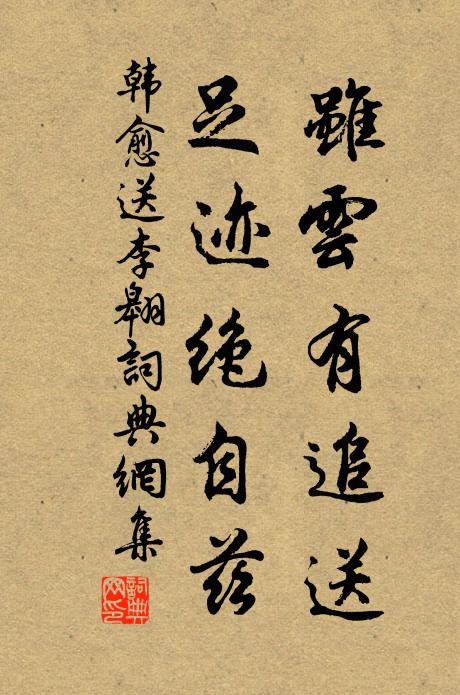 雖雲有追送
足迹絶自兹
韩愈送李翱詞典網集
詞典网印